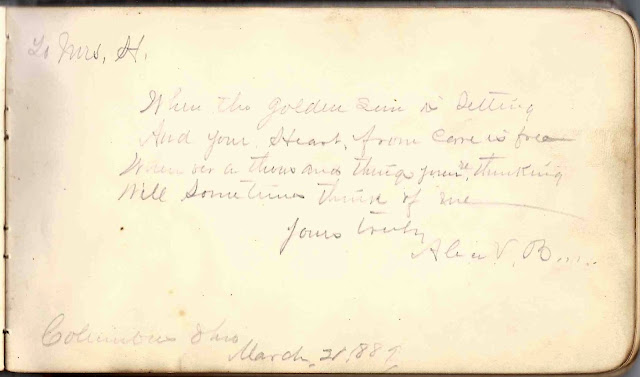 To Mrs, H.
When the golden Sun is Setting
And your Heart, from Care is free
When over a thousand things your're, thinking
Will Sometimes think of me
Yours truly
V. B.....
Columbus Ohio
March, 21, 1889,